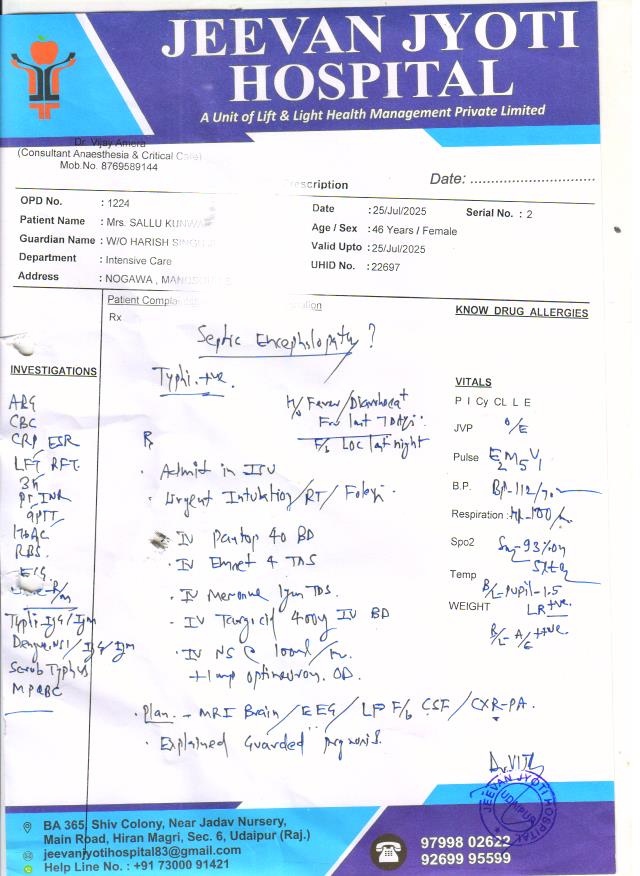 JEEVAN JYOTI
HOSPITAL
A Unit of Lift & Light Health Management Private Limited
Dr. Vijay Amera
(Consultant Anaesthesia & Critical Care)
Mob.No. 8769589144
Prescription
Date: ..............................
OPD No. : 1224
Patient Name : Mrs. SALLU KUNWA
Guardian Name : W/O HARISH SINGH
Department : Intensive Care
Address : NOGAWA ,
Date : 25/Jul/2025 Serial No. : 2
Age / Sex : 46 Years / Female
Valid Upto : 25/Jul/2025
UHID No. : 22697
Patient Complai
KNOW DRUG ALLERGIES
Rx
Septic Encephlopathy ?
Typhi +ve.
H/o Fever/Diarrhoea+
For last 7 Days
F/b LOC last night
INVESTIGATIONS
ABG
CBC
CRP ESR
LFT RFT
PT INR
aPTT
HbA1C
RBS
ECG
R/m
Typhi IgG/Igm
Dengue NS1/IgG/Igm
Scrub Typhus
MPQBC
Rx
. Admit in ICU
. Urgent Intubation/RT/Foleys.
. IV Pantop 40 BD
. IV Emset 4 TDS
. IV Meronue 1gm TDS.
. IV Targocid 400mg IV BD
. IV NS @ 100ml/hr
+ 1 amp optineuron OD.
. Plan. - MRI Brain/EEG/LP F/b CSF/CXR-PA.
. Explained Guarded Prognosis.
VITALS
P I Cy CL L E
JVP O/E
Pulse E2M5V1
B.P. BP-112/70
Respiration : HR-100/m
Spo2 93% on
Temp B/L-Pupil-1.5
WEIGHT LR+ve.
B/L-A/E+ve
JEEVAN JYOTI HOSPITAL
UDAIPUR
BA 365, Shiv Colony, Near Jadav Nursery,
Main Road, Hiran Magri, Sec. 6, Udaipur (Raj.)
jeevanjyotihospital83@gmail.com
Help Line No. : +91 73000 91421
97998 02622
92699 95599